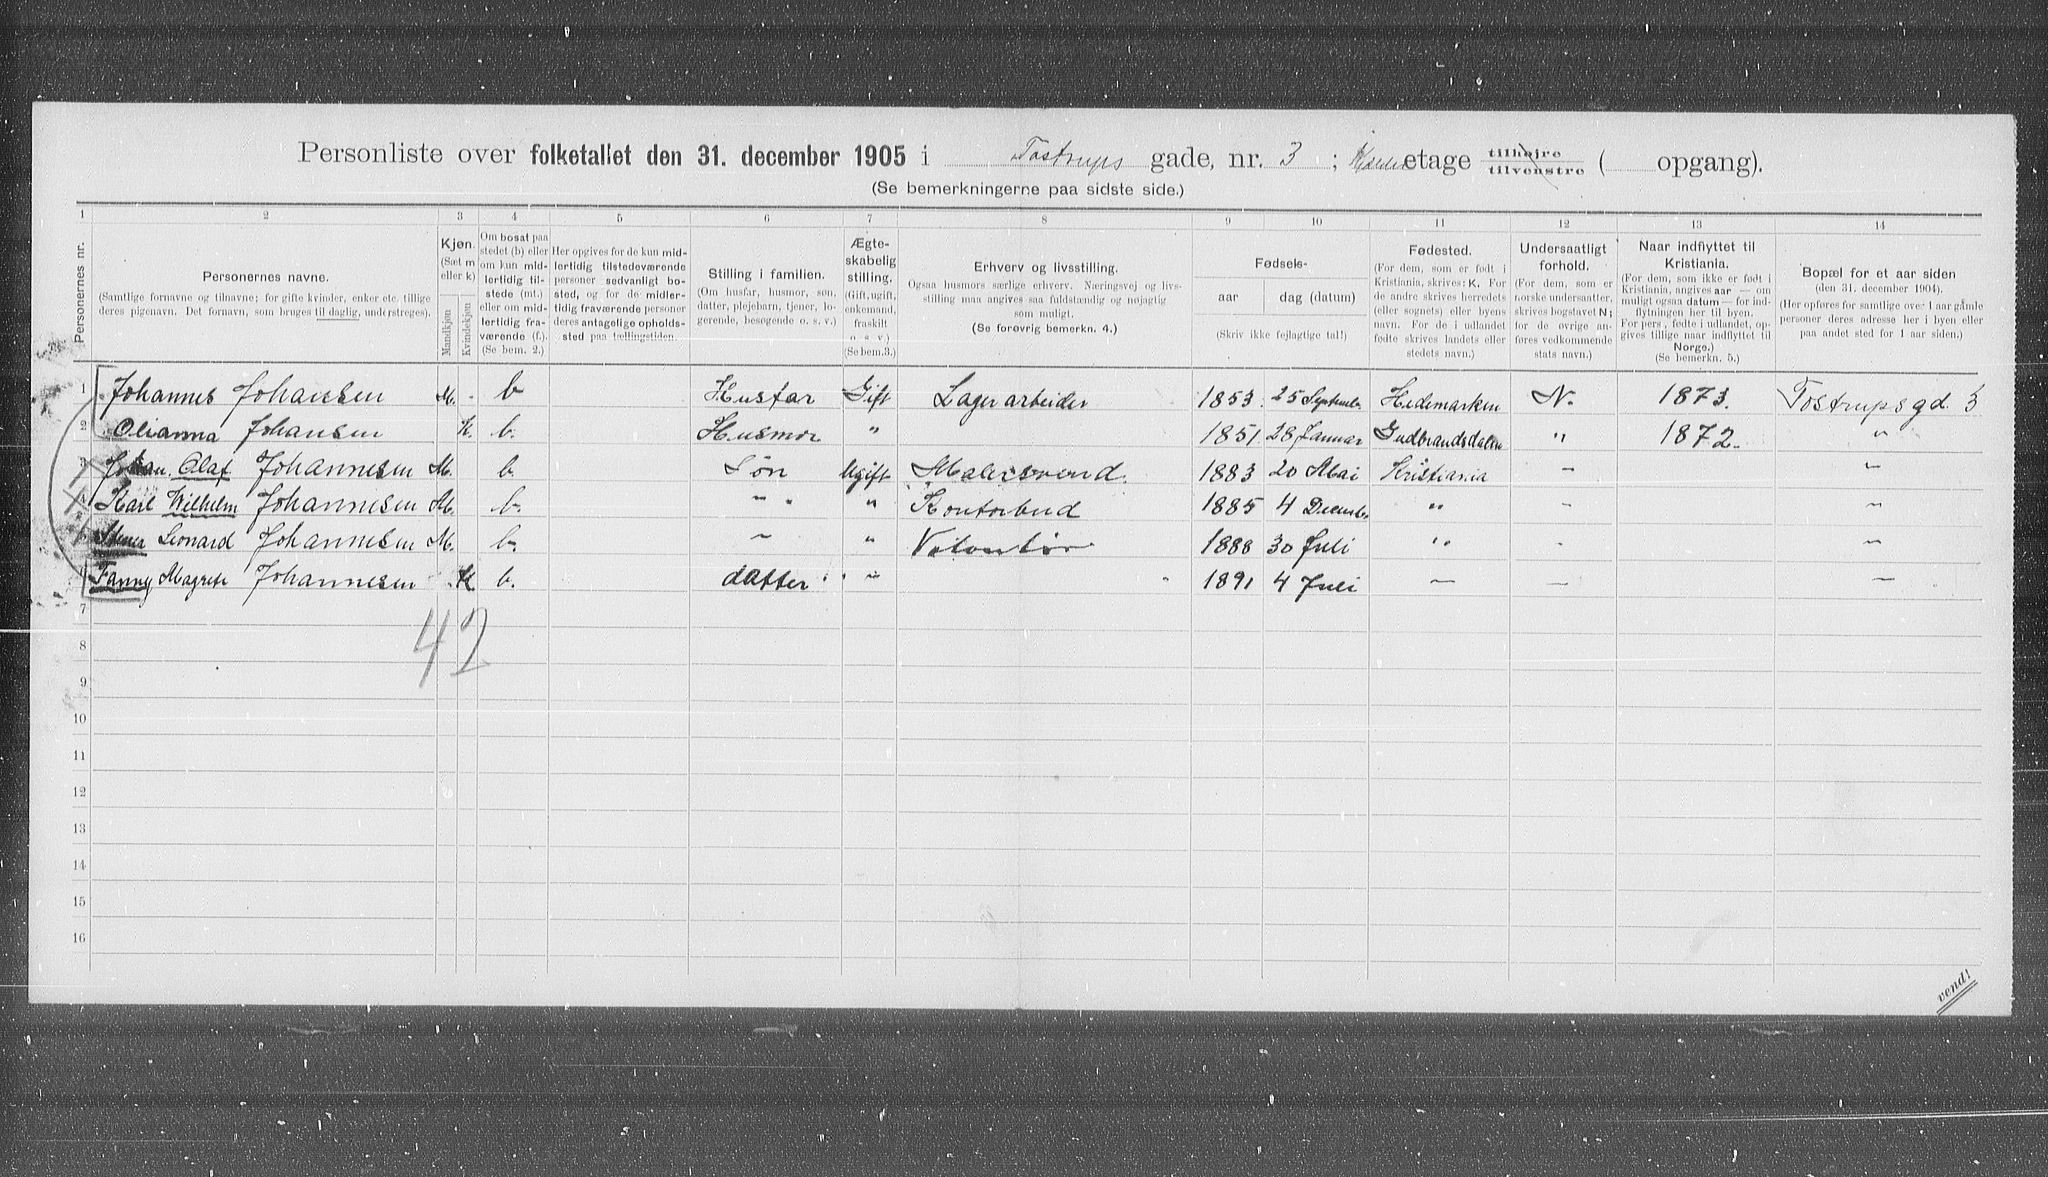 Personliste over folketallet den 31. december 1905 i Tostrups gade, nr. 3 ; etage tilhøjre tilvenstre ( opgang).
(Se bemerkningerne paa sidste side.)
1 2 3 4 5 6 7 8 9 10 11 12 13 14
Personernes nr.
Personernes navne.
(Samtlige fornavne og tilnavne; for gifte kvinder, enker etc. tillige
deres pigenavn. Det fornavn, som bruges til daglig, understreges).
Kjøn.
(Sæt m
eller k)
Mandkjøn
Kvindekjøn
Om bosat paa
stedet (b) eller
om kun mid-
lertidig til-
stede (mt.)
eller om mid-
lertidig fra-
værende (f.).
(Se bem. 2.)
Her opgives for de kun mid-
lertidig tilstedeværende
personer sedvanligt bo-
sted, og for de midler-
tidig fraværende personer
deres antagelige opholds-
sted paa tællingstiden.
Stilling i familien.
(Om husfar, husmor, søn,
datter, plejebarn, tjener, lo-
gerende, besøgende o. s. v.)
Ægte-
skabelig
stilling.
(Gift, ugift,
enkemand,
fraskilt
o. s. v.)
(Se bem.3.)
Erhverv og livsstilling.
Ogsaa husmors særlige erhverv. Næringsvej og livs-
stilling maa angives saa fuldstændig og nøjagtig
som muligt.
(Se forøvrig bemerkn. 4.)
Fødsels-
aar dag (datum)
(Skriv ikke fejlagtige tal!)
Fødested.
(For dem, som er født i
Kristiania, skrives: K. For
de andre skrives herredets
(eller sognets) eller byens
navn. For de i udlandet
fødte skrives landets eller
stedets navn.)
Undersaatligt
forhold.
(For dem, som er
norske undersaatter,
skrives bogstavet N;
for de øvrige an-
føres vedkommende
stats navn.)
Naar indflyttet til
Kristiania.
(For dem, som ikke er født i
Kristiania, angives aar — om
muligt ogsaa datum — for ind-
flytningen her til byen.
For pers., fødte i udlandet, op-
gives tillige naar indflyttet til
Norge.)
(Se bemerkn. 5.)
Bopæl for et aar siden
(den 31. december 1904).
(Her opføres for samtlige over 1 aar gamle
personer deres adresse her i byen eller
paa andet sted for 1 aar siden.)
1 Johannes Johansen M. b Husfar Gift Lagerarbeider 1853 25 Septemb. Hedemarken N. 1873. Tostrupsgd. 3
2 Olianna Johansen K. b. Husmor " 1851 28 Januar Gudbrandsdalen " 1872. "
3 Johan Olaf Johannesen M. b. Søn Ugift Malersvend. 1883 20 Mai Kristiania " "
4 Karl Wilhelm Johannesen M. b. " " " Kontorbud 1885 4 Decemb. " "
Leonard Johannesen M. b. " " Volontør 1888 30 Juli " " "
Fanny Magrete Johannesen K b. datter " 1891 4 Juli " " "
42
7
8
9
10
11
12
13
14
15
16
vend!